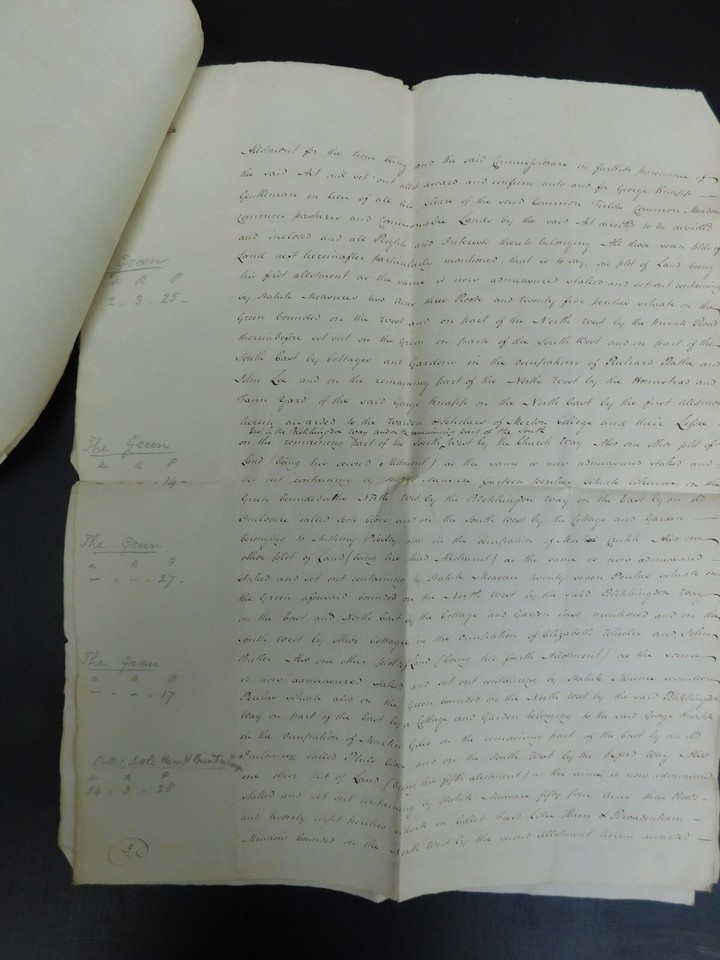 Allotment for the time being and the said Commissioners in further pursuance of
the said Act did set out allot award and confirm unto and for George Knapp
Gentleman in lieu of all his Share of the said Common Fields Common Meadow
Common pastures and Commonable Lands by the said Act directed to be divided
and inclosed and all Rights and Interests thereto belonging All those seven plots of
Land next hereinafter particularly mentioned, that is to say, one plot of Land being
his first allotment as the same is now admeasured staked and set out containing
by Statute Measures two Acres three Roods and twenty five perches situate on the
Green bounded on the West and on part of the North West by the private Road
hereinbefore set out on the Green on parts of the South West and on part of the
South East by Cottages and Gardens in the occupations of Richard Bathe and
John Lee and on the remaining part of the North West by the Homestead and
Farm Yard of the said George Knapp on the North East by the first Allotment
herein awarded to the Warden Scholars of Merton College and their Lessee
by the Bletchingdon Way and on the remaining part of the South
on the remaining Part of the South West by the Church Way Also one other plot of
Land (being his second Allotment) as the same is now admeasured staked and
set out containing by Statute Measure fourteen perches situate likewise on the
Green bounded on the North West by the Bletchingdon Way on the East by an old
Inclosure called Close and on the South West by the Cottage and Garden
belonging to Anthony now in the occupation of Also one
other plot of Land (being his third Allotment) as the same is now admeasured
staked and set out containing by Statute Measure twenty seven Perches situate on
the Green aforesaid bounded on the North West by the said Bletchingdon Way
on the East and North East by the Cottage and Garden last mentioned and on the
South West by other Cottages in the occupation of Elizabeth Wheeler and John
Butler Also one other plot of Land (being his fourth Allotment) as the same
is now admeasured staked and set out containing by Statute Measure seventeen
Perches situate also on the Green bounded on the North West by the said Bletchingdon
Way on part of the East by a Cottage and Garden belonging to the said George Knapp
in the occupation of Martin Giles on the remaining part of the East by an old
Inclosure called Close and on the South West by the Oxford Way Also
one other plot of Land (being his fifth allotment) as the same is now admeasured
staked and set out containing by Statute Measure fifty four Acres three Roods
and twenty eight perches situate in Field Little Ham &
Meadow bounded on the North West by the second Allotment herein awarded
Green
a R P
2 . 3 . 25
The Green
a R P
- . - . 14
The Green
a R P
- . - . 27
The Green
a R P
- . - . 17
Little Ham &
a R P
54 . 3 . 28